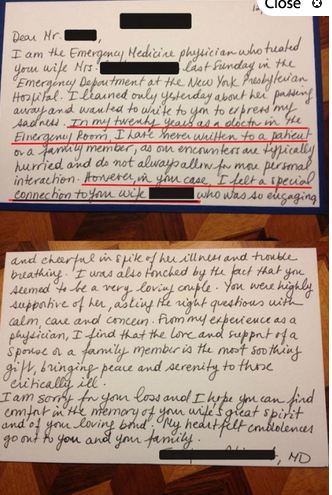 Close
Dear Mr.
I am the Emergency Medicine physician who treated
your wife Mrs. last Sunday in the
Emergency Department at the New York Presbyterian
Hospital. I learned only yesterday about her passing
away and wanted to write to you to express my
sadness. In my twenty years as a doctor in the
Emergency Room, I have never written to a patient
or a family member, as our encounters are typically
hurried and do not always allow for more personal
interaction. However, in your case, I felt a special
connection to your wife who was so engaging
and cheerful in spite of her illness and trouble
breathing. I was also touched by the fact that you
seemed to be a very loving couple. You were highly
supportive of her, asking the right questions with
calm, care and concern. From my experience as a
physician, I find that the love and support of a
spouse or a family member is the most soothing
gift, bringing peace and serenity to those
critically ill.
I am sorry for your loss and I hope you can find
comfort in the memory of your wife's great spirit
and of your loving bond. My heartfelt condolences
go out to you and your family.
MD